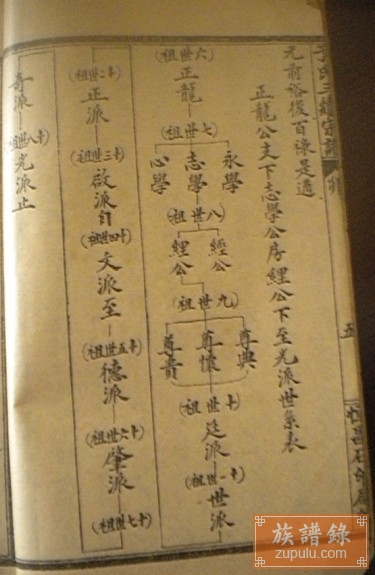 元前裕後百祿是遒
正龍公支下志學公房經公下至光派世系表
(六世祖)
正龍
(七世祖)
永學
志學
心學
(八世祖)
經公
鯉公
(九世祖)
尊典
尊懷
尊貴
(十世祖)
廷派
(十一世祖)
世派
(十二世祖)
正派
(十三世祖)
啟派自
(十四世祖)
文派至
(十五世祖)
德派
(十六世祖)
肇派
(十七世祖)
奇派
(十八世祖)
光派止
五
族譜錄
zupulu.com